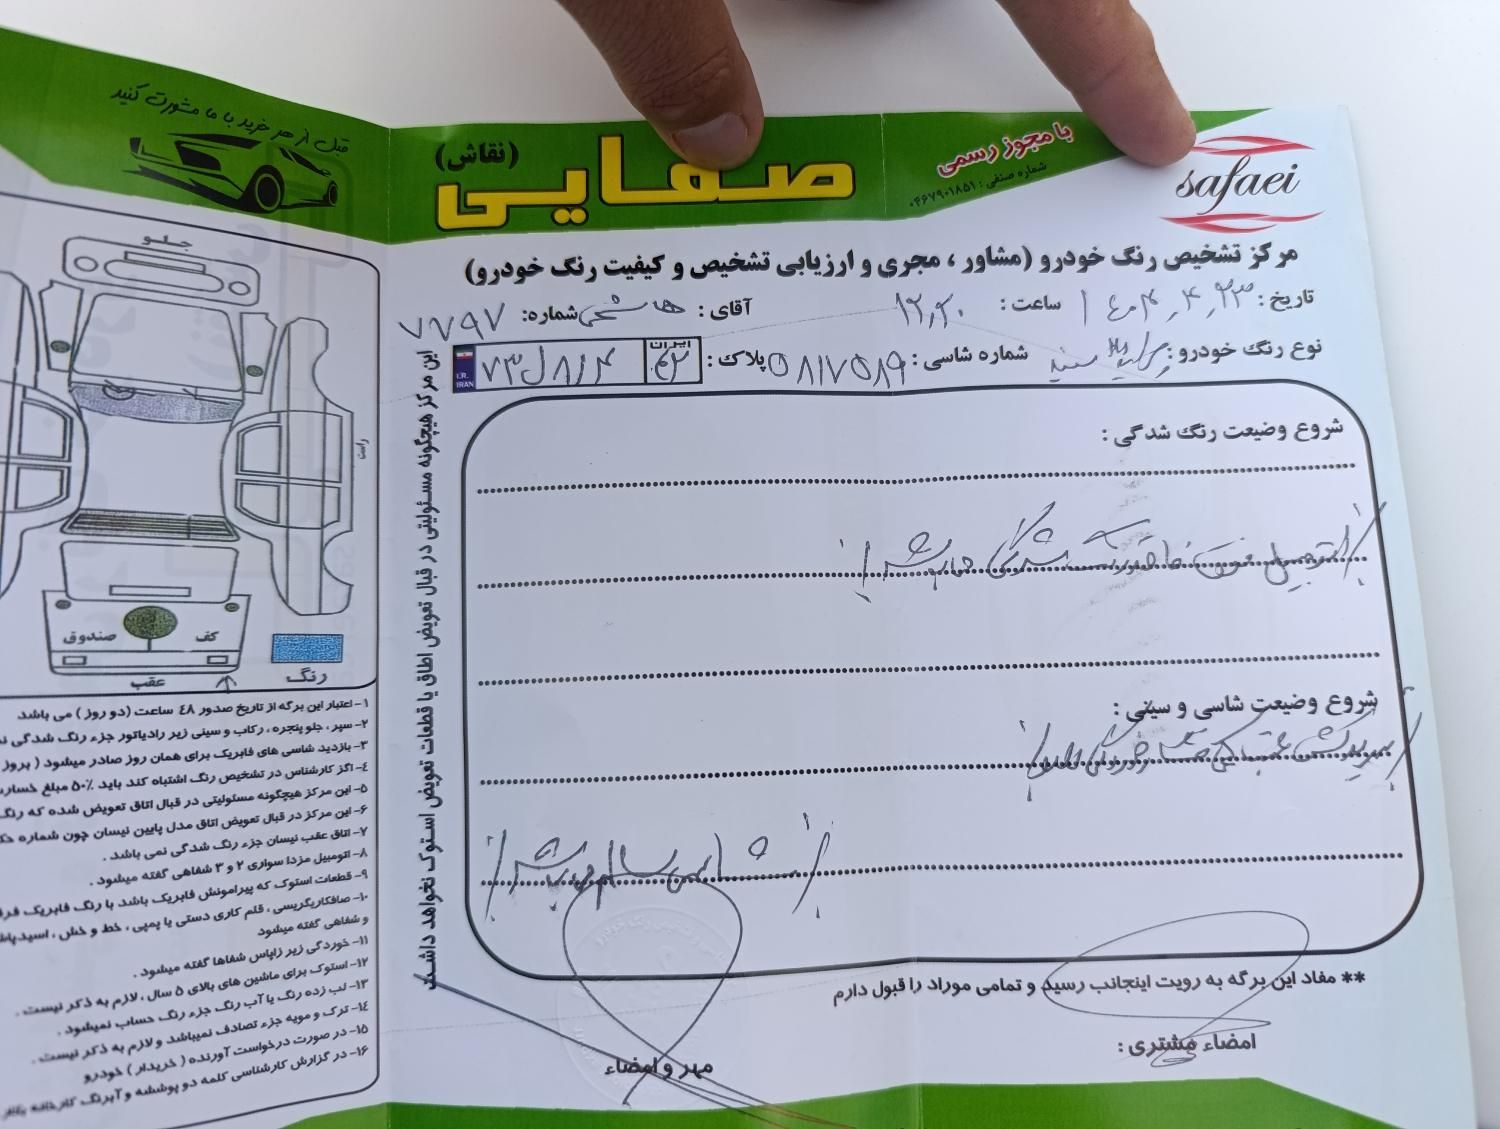 قبل از هر خرید با ما مشورت کنید
صفایی (نقاش)
با مجوز رسمی
شماره صنفی : ۰۴۶۷۹۰۱۸۵۱
safaei
مرکز تشخیص رنگ خودرو (مشاور ، مجری و ارزیابی تشخیص و کیفیت رنگ خودرو)
تاریخ : ۱۴۰۴,۴,۲۳ ساعت : ۱۲,۲۰ آقای : هاشمی شماره: ۷۷۹۷
نوع رنگ خودرو : پراید سفید شماره شاسی : ۰۸۱۷۵۸۹ پلاک : ایران ۶۲ ۷۳ ل ۸۱۴
I.R. IRAN
شروع وضیعت رنگ شدگی :
اتومبیل فوق فاقد رنگ شدگی میباشد
شروع وضیعت شاسی و سینی :
سالم میباشد
** مفاد این برگه به رویت اینجانب رسید و تمامی موارد را قبول دارم
امضاء مشتری :
مهر و امضاء
این مرکز هیچگونه مسئولیتی در قبال تعویض اطاق یا قطعات تعویض استوک نخواهد داشت
جلو
راست
صندوق
کف
عقب
رنگ
۱- اعتبار این برگه از تاریخ صدور ٤٨ ساعت (دو روز) می باشد
۲- سپر ، جلو پنجره ، رکاب و سینی زیر رادیاتور جزء رنگ شدگی
۳- بازدید شاسی های فابریک برای همان روز صادر میشود ( بروز
٤- اگر کارشناس در تشخیص رنگ اشتباه کند باید ۵۰٪ مبلغ خسارت
۵- این مرکز هیچگونه مسئولیتی در قبال اتاق تعویض شده که رنگ
۶- این مرکز در قبال تعویض اتاق مدل پایین نیسان چون شماره
۷- اتاق عقب نیسان جزء رنگ شدگی نمی باشد .
۸- اتومبیل مزدا سواری ۲ و ۳ شفاهی گفته میشود .
۹- قطعات استوک که پیرامونش فابریک باشد با رنگ فابریک
۱۰- صافکاریگریسی ، قلم کاری دستی یا پمپی ، خط و خش ، اسیدپاشی
و شفاهی گفته میشود
۱۱- خوردگی زیر زاپاس شفاها گفته میشود .
۱۲- استوک برای ماشین های بالای ۵ سال ، لازم به ذکر نیست .
۱۳- لب زده رنگ یا آب رنگ جزء رنگ حساب نمیشود .
١٤- ترک و مویه جزء تصادف نمیباشد و لازم به ذکر نیست .
۱۵- در صورت درخواست آورنده ( خریدار ) خودرو
۱۶- در گزارش کارشناسی کلمه دو پوششه و آبرنگ کارخانه